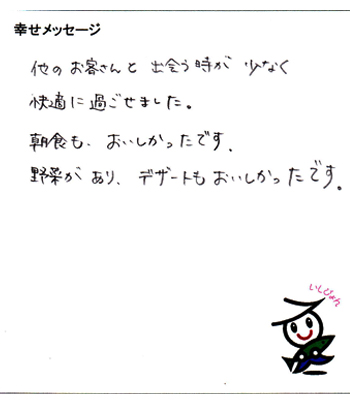 幸せメッセージ
他のお客さんと出会う時が少なく
快適に過ごせました。
朝食も、おいしかったです。
野菜があり、デザートもおいしかったです。